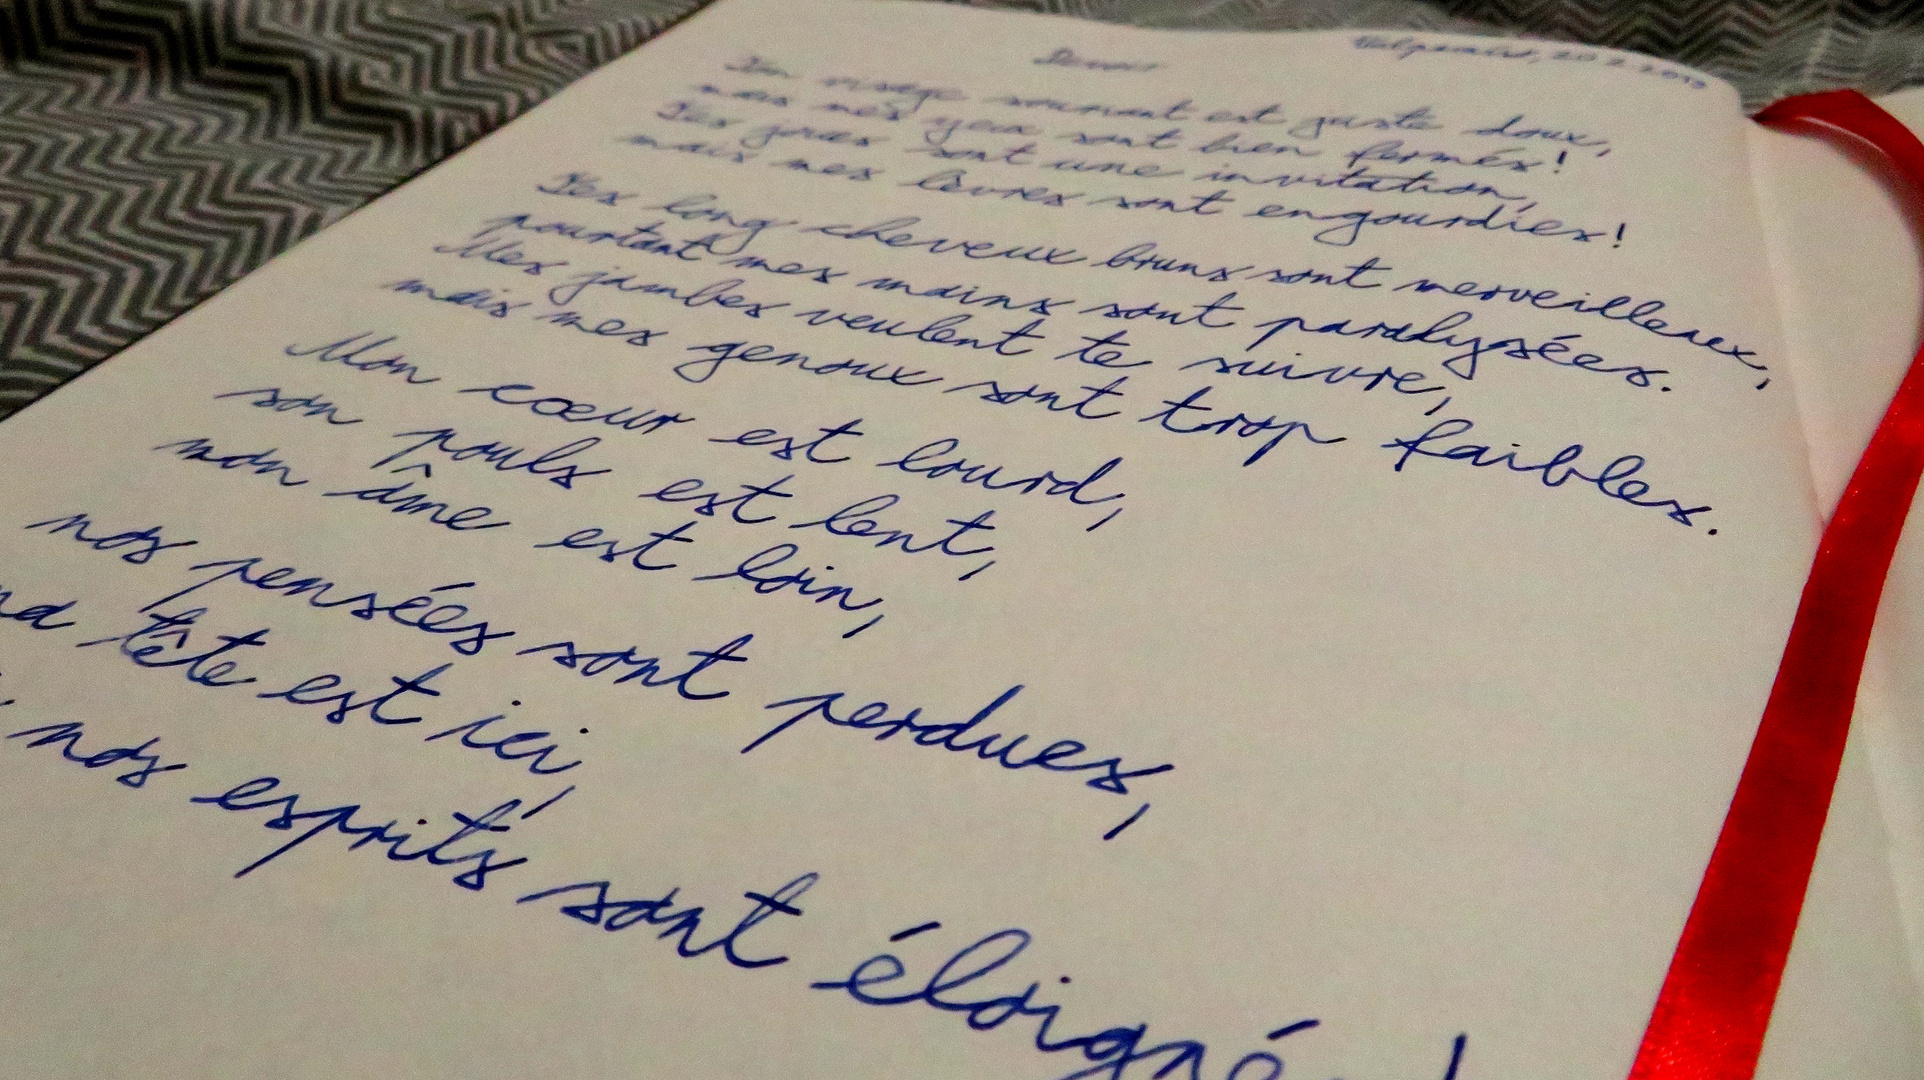 Valparaiso, 20.2.2019
Devoir
Ton visage souriant est juste doux,
mais mes yeux sont bien fermés!
Tes joues sont une invitation,
mais mes lèvres sont engourdies!
Tes long cheveux bruns sont merveilleux,
pourtant mes mains sont paralysées.
Mes jambes veulent te suivre,
mais mes genoux sont trop faibles.
Mon cœur est lourd,
son pouls est lent,
mon âme est loin,
nos pensées sont perdues,
tête est ici,
nos esprits sont